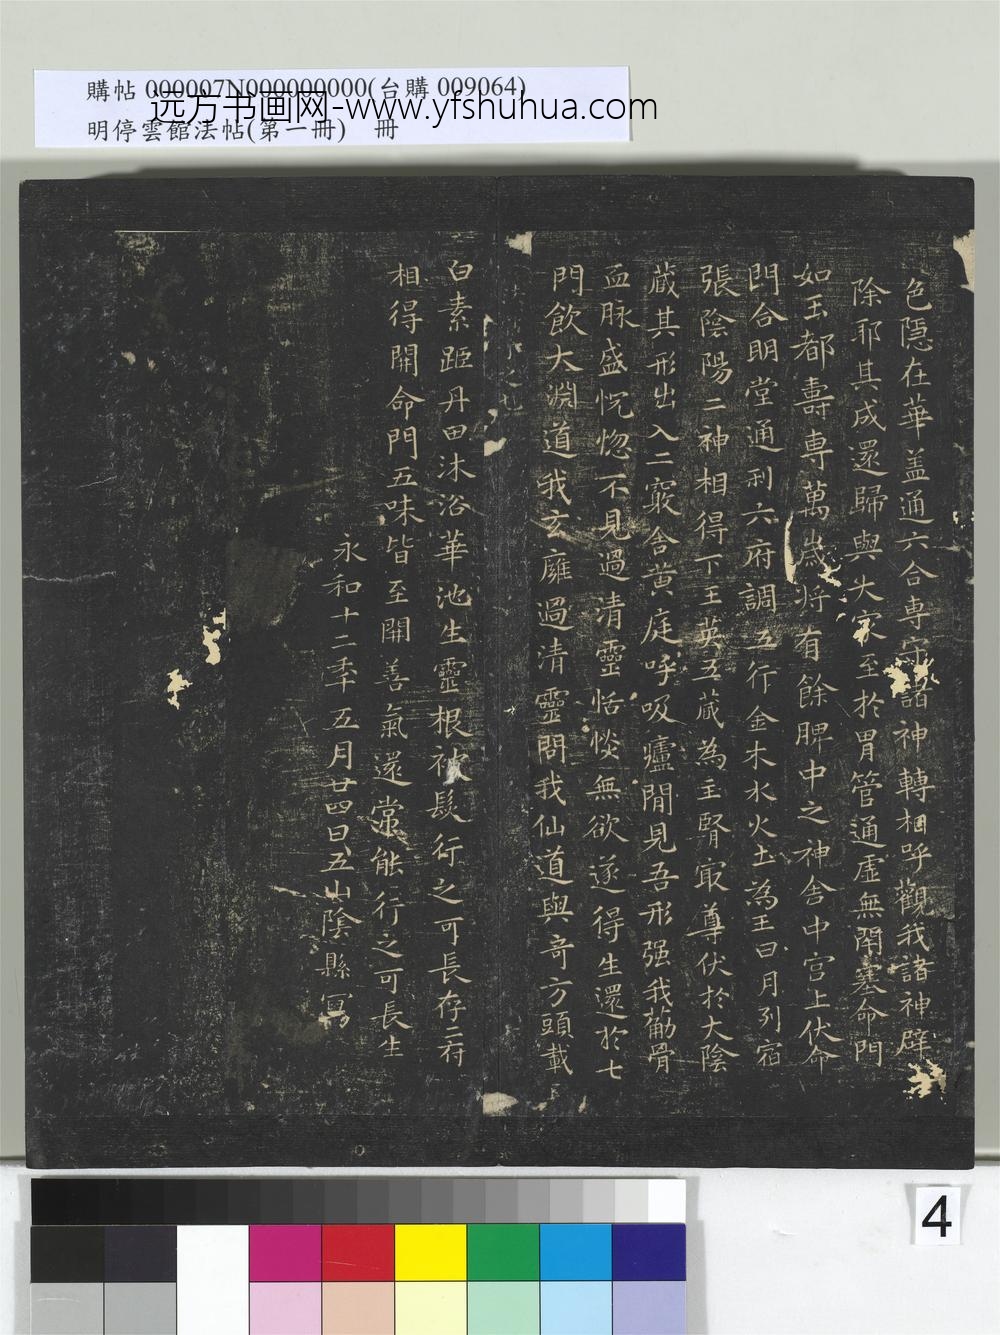 購帖 000007N000000000(台購 009064)
远方书画网-www.yfshuhua.com
明停雲館法帖(第一冊) 冊
色隱在華盖通六合専守諸神轉相呼觀我諸神辟
除耶其成還歸與大家至於胃管通虛無閉塞命門
如玉都壽専萬歲将有餘脾中之神舍中宫上伏命
門合明堂通利六府調五行金木水火土為王日月列宿
張陰陽二神相得下王英五蔵為主腎冣尊伏於大陰
蔵其形出入二竅舍黄庭呼吸廬閒見吾形强我葋骨
血脉盛怳惚不見過清靈恬惔無欲遂得生還於七
門飲大渊道我玄廱過清靈問我仙道與竒方頭載
白素距丹田沐浴華池生靈根被髮行之可長存二府
相得開命門五味皆至開善氣還常能行之可長生
永和十二秊五月廿四日五山陰縣寫
4